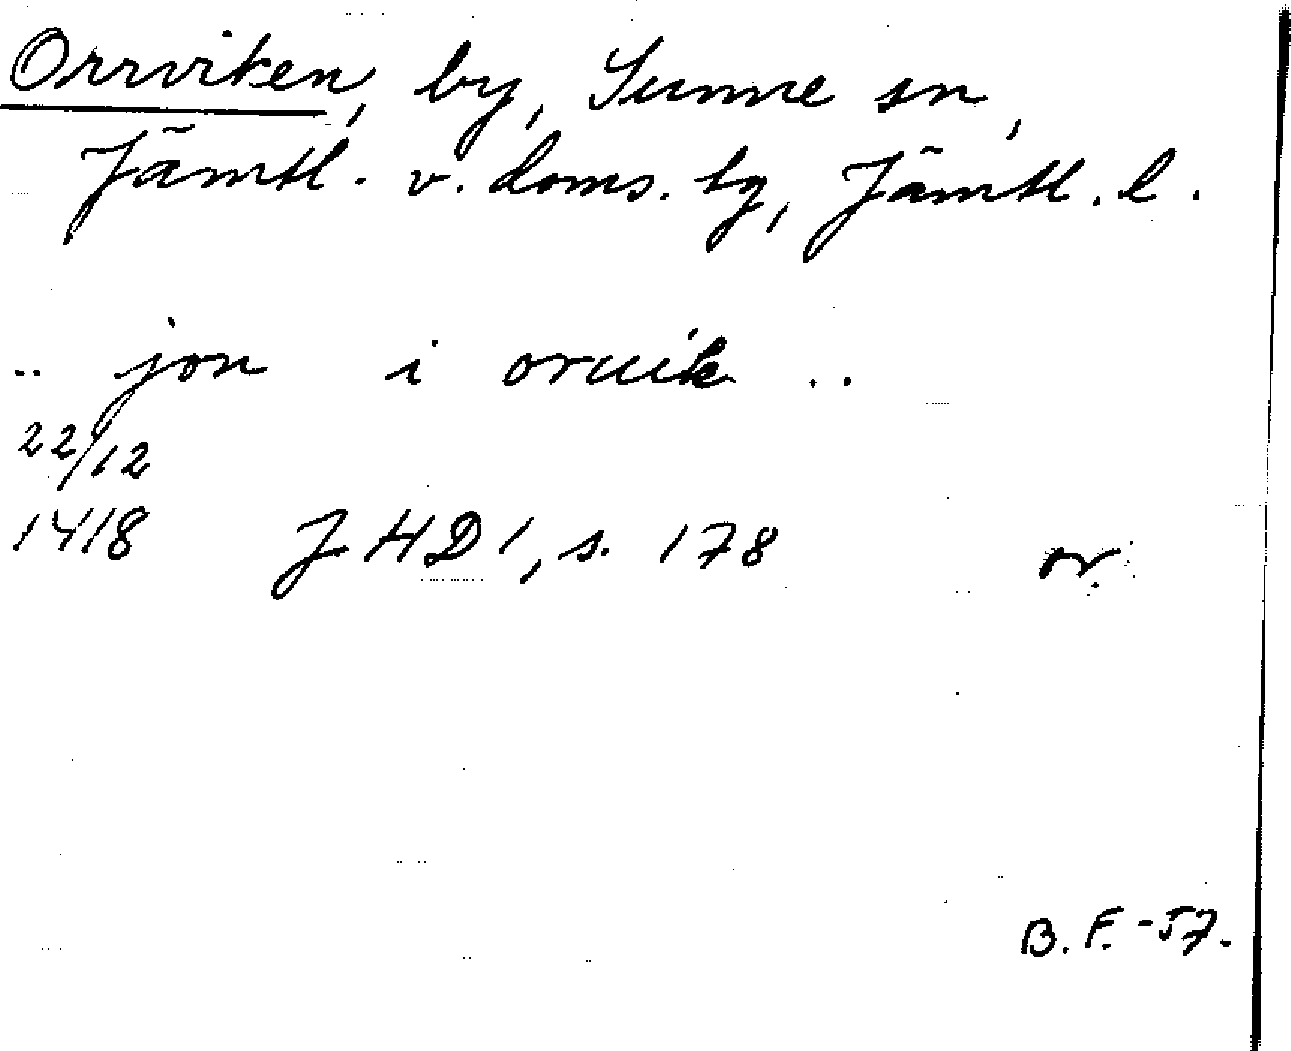 Orrviken, by, Sunne sn,
Jämtl. v. doms. tg, Jämtl. l.
.. jon i oruik ..
22/12
1418 JHD 1, s. 178 or.
B. F. -57.